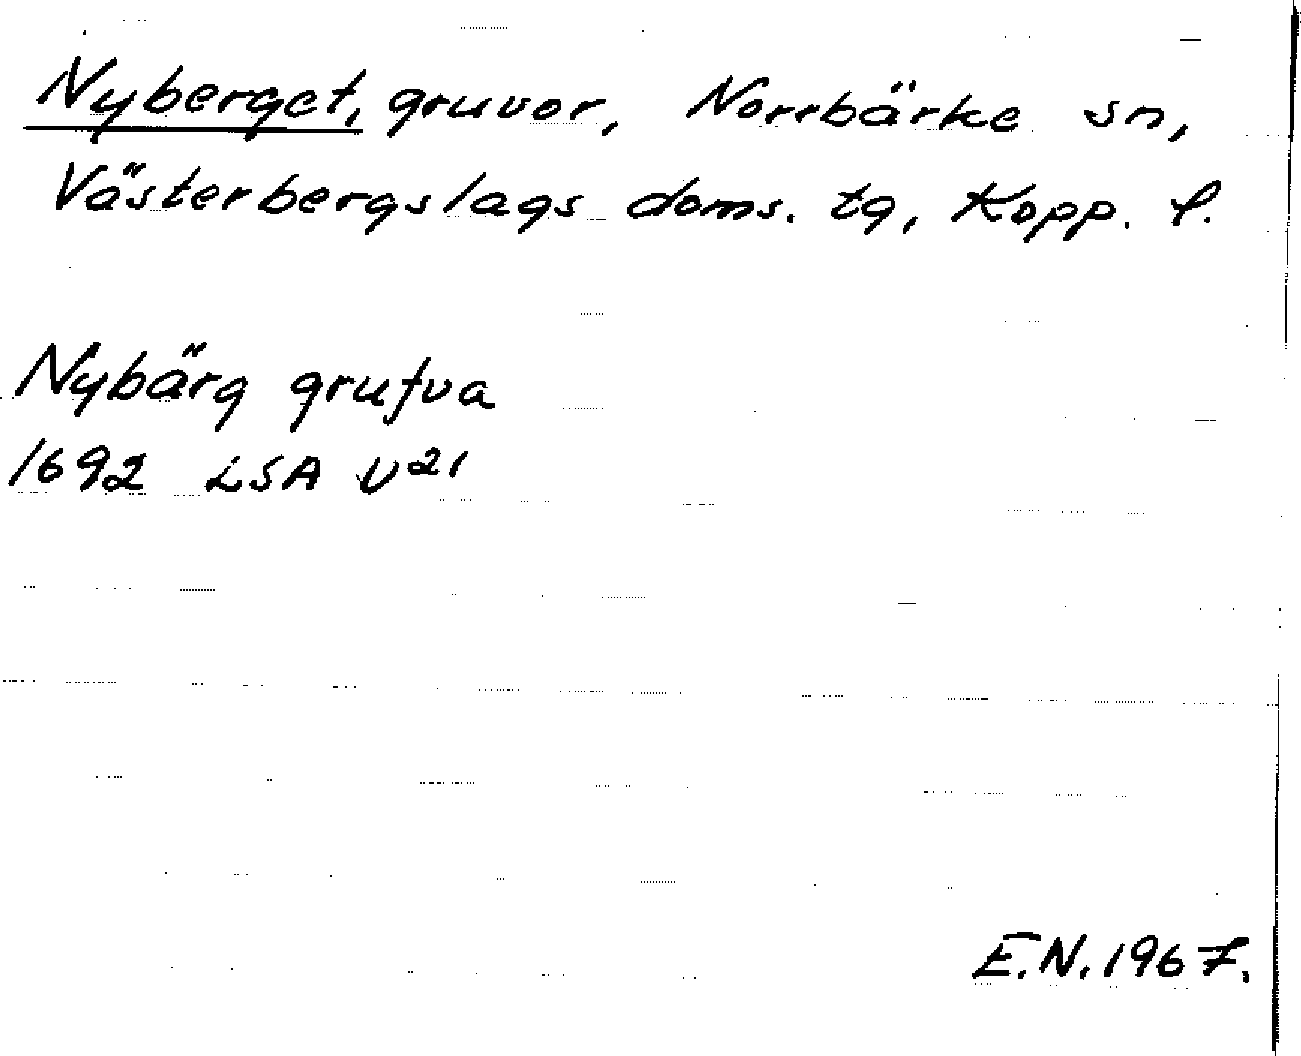 Nyberget, gruvor, Norrbärke sn,
Västerbergslags doms. tg, Kopp. l.
Nybärg grufva
1692 LSA U²¹
E.N. 1967.